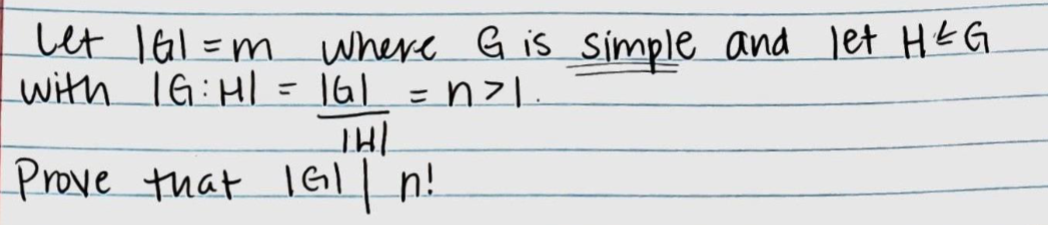 Let |G| = m where G is simple and let H ≤ G
with |G:H| = |G|/|H| = n > 1.
Prove that |G| | n!